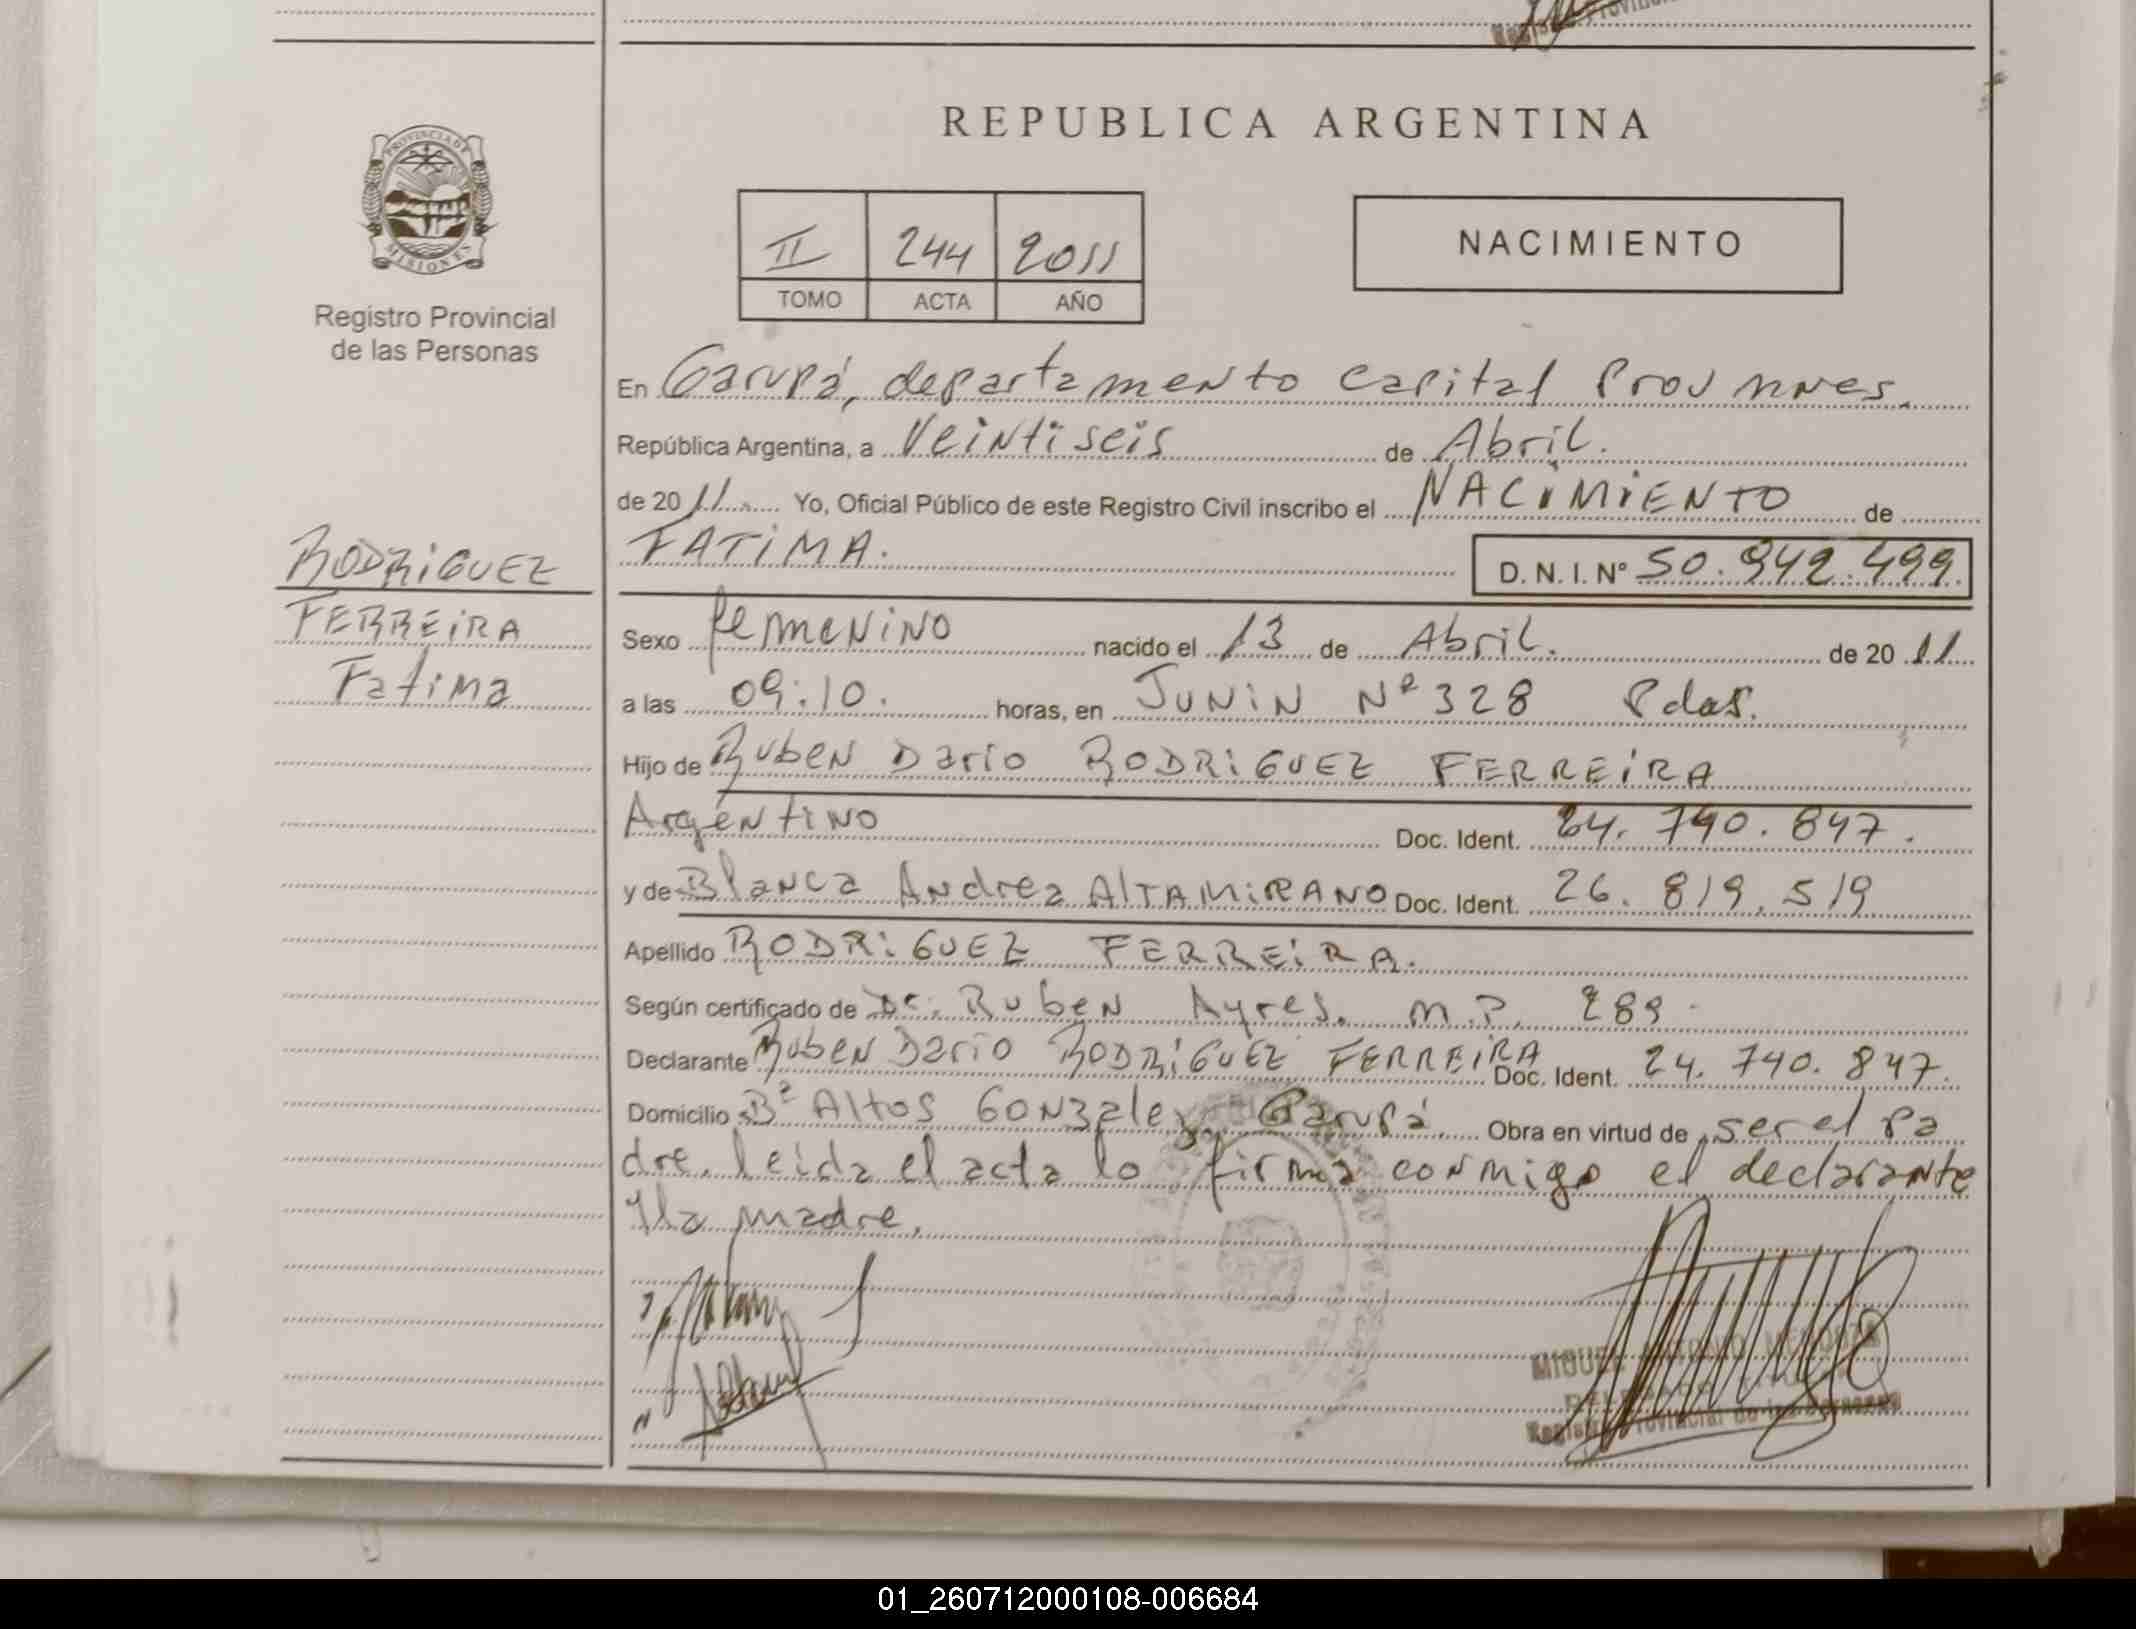 REPUBLICA ARGENTINA
PROVINCIA DE
MISIONES
Registro Provincial
de las Personas
II 244 2011
TOMO ACTA AÑO
NACIMIENTO
En Garupá, departamento capital Prov mnes.
República Argentina, a Veintiseis de Abril.
de 2011 Yo, Oficial Público de este Registro Civil inscribo el NACIMIENTO de
FATIMA.
D. N. I. Nº 50.942.499.
RODRIGUEZ
FERREIRA
Fatima
Sexo femenino nacido el 13 de Abril. de 2011
a las 09:10. horas, en JUNIN Nº 328 Pdas.
Hijo de Ruben Dario RODRIGUEZ FERREIRA
Argentino Doc. Ident. 24.740.847.
y de Blanca Andrea ALTAMIRANO Doc. Ident. 26.819.519
Apellido RODRIGUEZ FERREIRA.
Según certificado de Dr. Ruben Ayres. M.P. 289
Declarante Ruben Dario RODRIGUEZ FERREIRA Doc. Ident. 24.740.847.
Domicilio Bº Altos Gonzalez Garupá. Obra en virtud de ser el pa
dre. leida el acta lo firma conmigo el declarante
y la madre.
MIGUEL ANTONIO MENDOZA
DELEGADO
Registro Provincial de las Personas
01_260712000108-006684